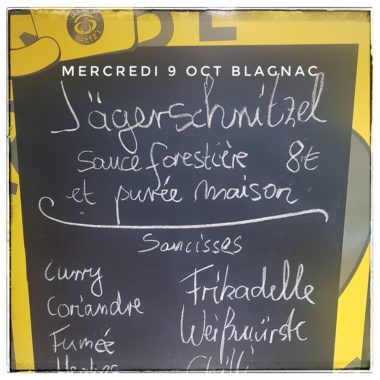 MERCREDI 9 OCT BLAGNAC
Jägerschnitzel
sauce forestière 8€
et purée maison
Saucisses
Curry
Coriandre
Fumée
Herbes
Frikadelle
Weißwürste
Chilli